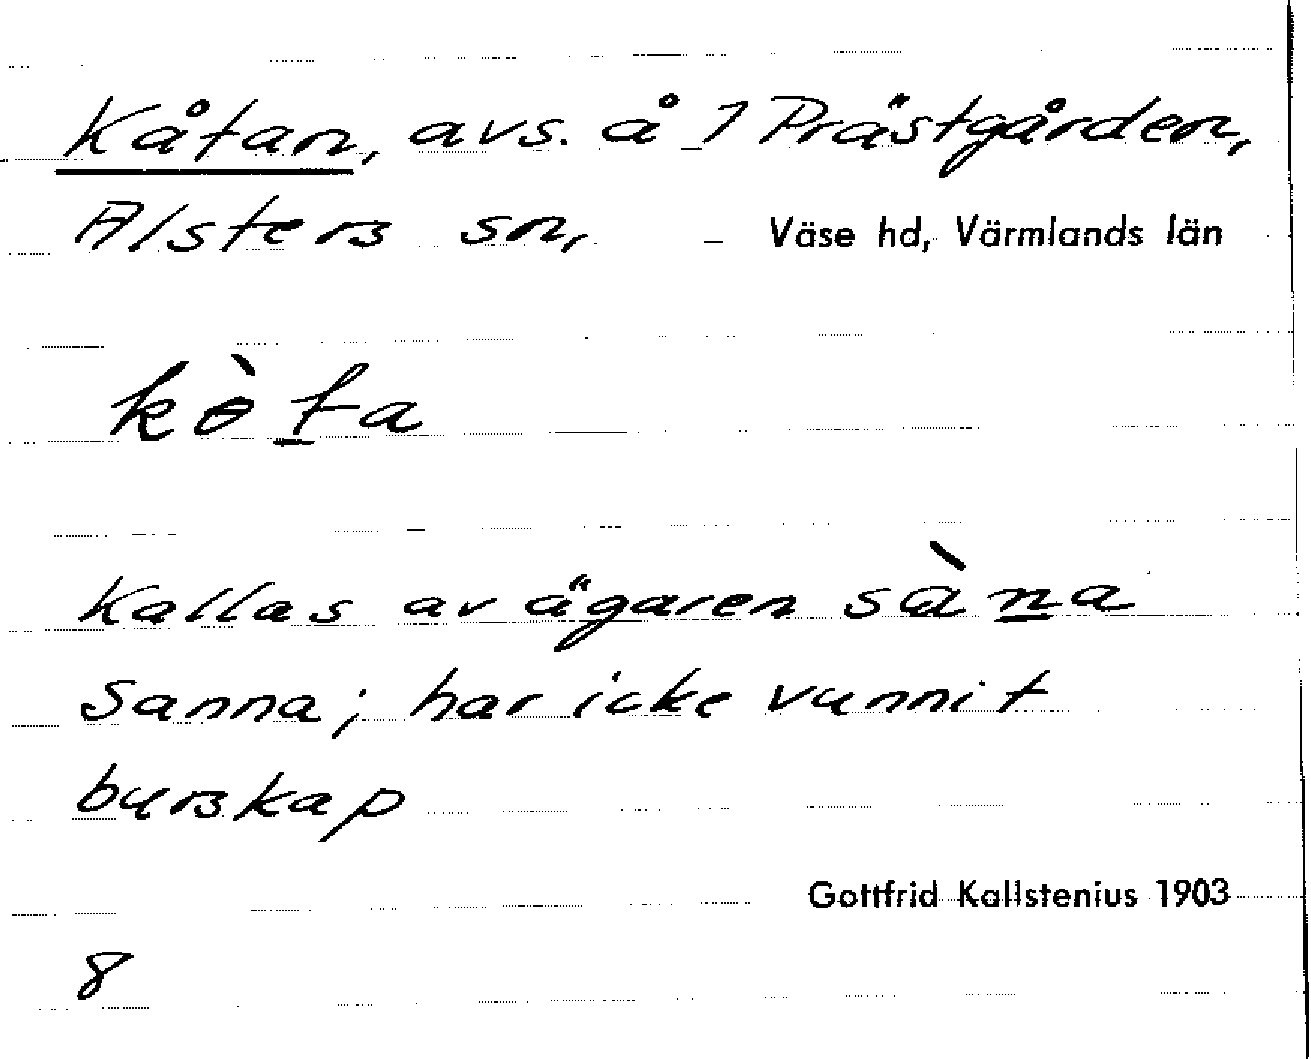 Kåtan, avs. å 1 Prästgården,
Alsters sn, Väse hd, Värmlands län
kɵ̀ta
Kallas av ägaren sàna
Sanna; har icke vunnit
burskap
Gottfrid Kallstenius 1903
8